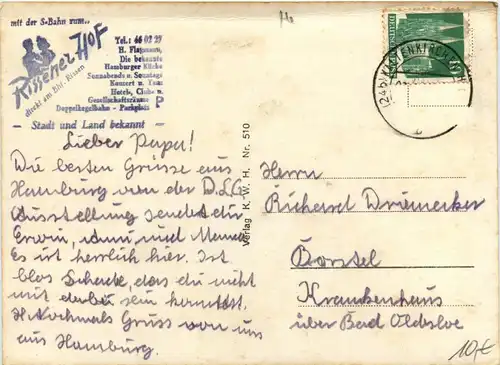 mit der S-Bahn zum..
Rissener Hof
direkt am Bhf. Rissen
Tel.: 46 02 27
H.
Die bekannte
Hamburger Küche
Sonnabends u. Sonntags
Konzert u. Tanz
Hotel-, Club- u.
Gesellschaftsräume
Doppelkegelbahn - Parkplatz
P
— Stadt und Land bekannt —
Lieber Papa!
Die besten Grüsse aus
Hamburg von der D.L.G.
Ausstellung sendet dir
Erwin, und Mama
Es ist herrlich hier. Ist
blos Schade, das du nicht
mit dabei sein konntest.
Hochmals Gruss von uns
aus Hamburg.
Verlag K. W. H. Nr. 510
Herrn
Richard Driemecker
Borstel
Krankenhaus
über Bad Oldesloe
10,€